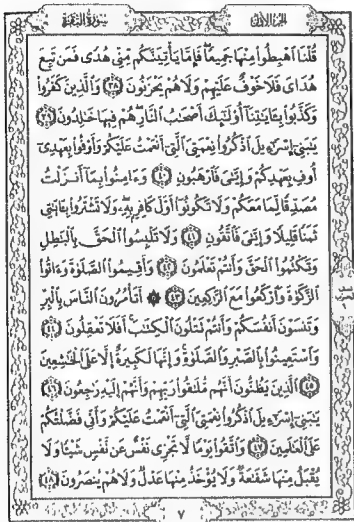 سُورَةُ البَقَرَةِ الجُزءُ الأَوَّلُ
قُلْنَا ٱهْبِطُوا۟ مِنْهَا جَمِيعًا فَإِمَّا يَأْتِيَنَّكُم مِّنِّى هُدًى فَمَن تَبِعَ
هُدَاىَ فَلَا خَوْفٌ عَلَيْهِمْ وَلَا هُمْ يَحْزَنُونَ ﴿٣٨﴾ وَٱلَّذِينَ كَفَرُوا۟
وَكَذَّبُوا۟ بِـَٔايَـٰتِنَآ أُو۟لَـٰٓئِكَ أَصْحَـٰبُ ٱلنَّارِ هُمْ فِيهَا خَـٰلِدُونَ ﴿٣٩﴾
يَـٰبَنِىٓ إِسْرَٰٓءِيلَ ٱذْكُرُوا۟ نِعْمَتِىَ ٱلَّتِىٓ أَنْعَمْتُ عَلَيْكُمْ وَأَوْفُوا۟ بِعَهْدِىٓ
أُوفِ بِعَهْدِكُمْ وَإِيَّـٰىَ فَٱرْهَبُونِ ﴿٤٠﴾ وَءَامِنُوا۟ بِمَآ أَنزَلْتُ
مُصَدِّقًا لِّمَا مَعَكُمْ وَلَا تَكُونُوٓا۟ أَوَّلَ كَافِرٍۭ بِهِۦ وَلَا تَشْتَرُوا۟ بِـَٔايَـٰتِى
ثَمَنًا قَلِيلًا وَإِيَّـٰىَ فَٱتَّقُونِ ﴿٤١﴾ وَلَا تَلْبِسُوا۟ ٱلْحَقَّ بِٱلْبَـٰطِلِ
وَتَكْتُمُوا۟ ٱلْحَقَّ وَأَنتُمْ تَعْلَمُونَ ﴿٤٢﴾ وَأَقِيمُوا۟ ٱلصَّلَوٰةَ وَءَاتُوا۟
ٱلزَّكَوٰةَ وَٱرْكَعُوا۟ مَعَ ٱلرَّٰكِعِينَ ﴿٤٣﴾ ۞ أَتَأْمُرُونَ ٱلنَّاسَ بِٱلْبِرِّ
وَتَنسَوْنَ أَنفُسَكُمْ وَأَنتُمْ تَتْلُونَ ٱلْكِتَـٰبَ أَفَلَا تَعْقِلُونَ ﴿٤٤﴾
وَٱسْتَعِينُوا۟ بِٱلصَّبْرِ وَٱلصَّلَوٰةِ وَإِنَّهَا لَكَبِيرَةٌ إِلَّا عَلَى ٱلْخَـٰشِعِينَ
﴿٤٥﴾ ٱلَّذِينَ يَظُنُّونَ أَنَّهُم مُّلَـٰقُوا۟ رَبِّهِمْ وَأَنَّهُمْ إِلَيْهِ رَٰجِعُونَ ﴿٤٦﴾
يَـٰبَنِىٓ إِسْرَٰٓءِيلَ ٱذْكُرُوا۟ نِعْمَتِىَ ٱلَّتِىٓ أَنْعَمْتُ عَلَيْكُمْ وَأَنِّى فَضَّلْتُكُمْ
عَلَى ٱلْعَـٰلَمِينَ ﴿٤٧﴾ وَٱتَّقُوا۟ يَوْمًا لَّا تَجْزِى نَفْسٌ عَن نَّفْسٍ شَيْـًٔا وَلَا
يُقْبَلُ مِنْهَا شَفَـٰعَةٌ وَلَا يُؤْخَذُ مِنْهَا عَدْلٌ وَلَا هُمْ يُنصَرُونَ ﴿٤٨﴾
٧